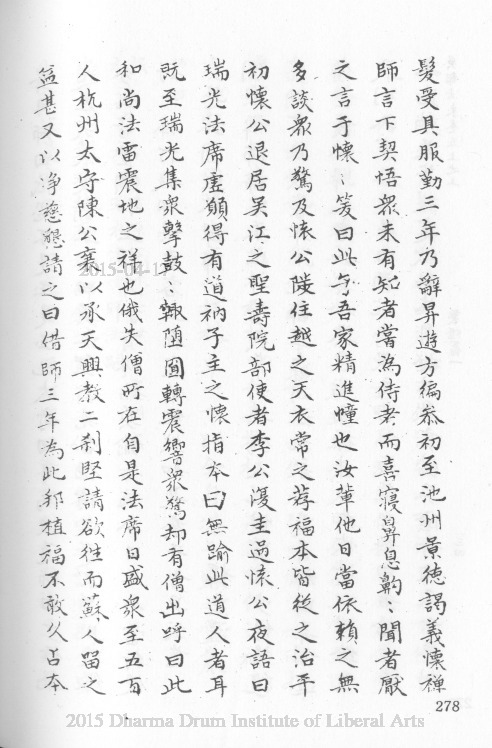 髮受具服勤三年乃辭昇遊方徧叅初至池州景德謁義懷禪
師言下契悟衆未有知者嘗為侍者而喜寢鼻息齁〻聞者厭
之言于懷〻笑曰此子吾家精進幢也汝輩他日當依賴之無
多談衆乃驚及懷公陞住越之天衣常之荐福本皆從之治平
初懷公退居吴江之聖壽院部使者李公復圭過懷公夜語曰
瑞光法席虛願得有道衲子主之懷指本曰無踰此道人者耳
既至瑞光集衆擊鼓〻輒墮圎轉震響衆驚却有僧出呼曰此
和尚法雷震地之祥也俄失僧所在自是法席日盛衆至五百
人杭州太守陳公襄以承天興教二刹堅請欲徃而蘇人留之
益甚又以净慈懇請之曰借師三年為此邦植福不敢久占本
278
2015-04-1
2015 Dharma Drum Institute of Liberal Arts